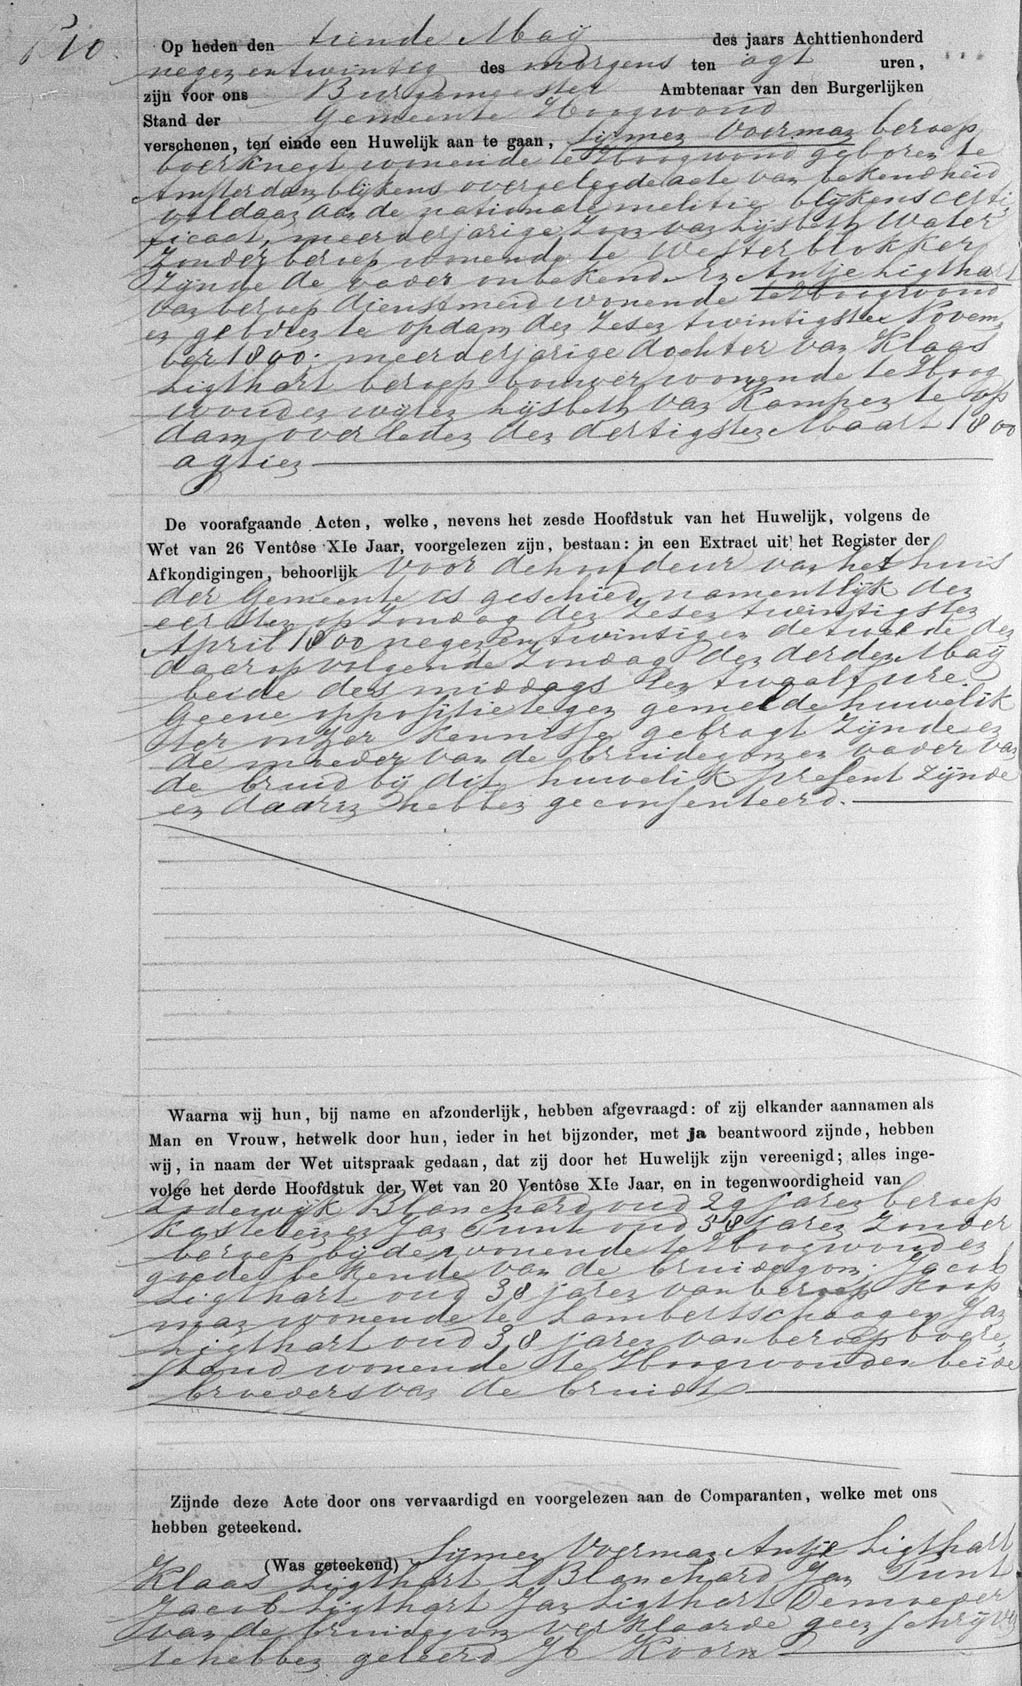 N 10.
Op heden den tiende Maij des jaars Achttienhonderd
negen en twintig des morgens ten agt uren,
zijn voor ons Burgemeester Ambtenaar van den Burgerlijken
Stand der Gemeente Hoogwoud
verschenen, ten einde een Huwelijk aan te gaan, Sijmen Voerman beroep
boerknegt wonende te Hoogwoud geboren te
Amsterdam blijkens overgelegde acte van bekendheid
voldaan aan de nationale melitie blijkens certi-
ficaat, meerderjarige Zoon van Lijsbeth Water
Zonder beroep wonende te Westerblokker
Zijnde de vader onbekend. En Antje Ligthart
van beroep dienstmeid wonende te Hoogwoud
en geboren te opdam den Zesen twintigsten Novem-
ber 1800. meerderjarige dochter van Klaas
Ligthart beroep bouwer wonende te Hoog
woud en wijlen Lijsbeth van Kampen te op
dam overleden den dertigsten Maart 1800
agtien
De voorafgaande Acten, welke, nevens het zesde Hoofdstuk van het Huwelijk, volgens de
Wet van 26 Ventôse XIe Jaar, voorgelezen zijn, bestaan: in een Extract uit het Register der
Afkondigingen, behoorlijk voor de hofdeur van het huis
der Gemeente is geschied namentlijk den
eersten op Zondag den Zesen twintigsten
April 1800 negen en twintig en de tweede den
daaropvolgende Zondag den derden Maij
beide des middags ten twaalf ure
Geene oppositie tegen gemelde huwelijk
ter onzer kennisse gebragt Zijnde en
de moeder van de bruidegom en vader van
de bruid bij dit huwelijk present Zijnde
en daarin hebben geconsenteerd.
Waarna wij hun, bij name en afzonderlijk, hebben afgevraagd: of zij elkander aannamen als
Man en Vrouw, hetwelk door hun, ieder in het bijzonder, met ja beantwoord zijnde, hebben
wij, in naam der Wet uitspraak gedaan, dat zij door het Huwelijk zijn vereenigd; alles inge-
volge het derde Hoofdstuk der Wet van 20 Ventôse XIe Jaar, en in tegenwoordigheid van
Lodewijk Blanchard oud 29 jaren beroep
Kastelein en Jan Punt oud 58 jaren Zonder
beroep bijde wonende te Hoogwoud en
goede bekende van de bruidegom. Jacob
Ligthart oud 38 jaren van beroep Koop
man wonende te Lambertschaag en Jan
Ligthart oud 38 jaren van beroep boere
stand wonende te Hoogwoud en beide
broeders van de bruid
Zijnde deze Acte door ons vervaardigd en voorgelezen aan de Comparanten, welke met ons
hebben geteekend.
(Was geteekend) Sijmen Voerman Antje Ligthart
Klaas Ligthart L Blanchard Jan Punt
Jacob Ligthart Jan Ligthart De moeder
van de bruidegom verklaarde geen schrijven
te hebben geleerd Jb Koorn